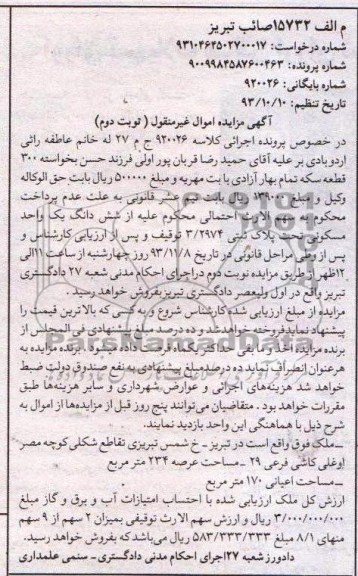 م الف ۱۵۷۳۲صائب تبریز
شماره درخواست: ۹۳۱۰۴۶۴۵۰۲۷۰۰۰۱۷
شماره پرونده: ۹۰۰۹۹۸۴۵۸۷۶۰۰۴۶۳
شماره بایگانی: ۹۲۰۰۲۶
تاریخ تنظیم: ۹۳/۱۰/۱۰
آگهی مزایده اموال غیرمنقول ( نوبت دوم)
در خصوص پرونده اجرائی کلاسه ۹۲۰۰۲۶ ج م ۲۷ له خانم عاطفه راثی
اردوبادی بر علیه آقای حمید رضا قربان پور اولی فرزند حسن بخواسته ۳۰۰
قطعه سکه تمام بهار آزادی بابت مهریه و مبلغ ۵۰۰۰۰۰ ریال بابت حق الوکاله
وکیل و مبلغ ریال بابت نیم عشر قانونی به علت عدم پرداخت
محکوم به سهم الارث احتمالی محکوم علیه از شش دانگ یک واحد
مسکونی تحت پلاک ثبتی ۳/۲۹۷۴ توقیف و پس از ارزیابی کارشناس و
پس از طی مراحل قانونی در تاریخ ۹۳/۱۱/۸ روز چهارشنبه از ساعت ۱۱الی
۱۲ظهر از طریق مزایده نوبت دوم دراجرای احکام مدنی شعبه ۲۷ دادگستری
تبریز واقع در اول ولیعصر دادگستری تبریز بفروش خواهد رسید .
مزایده از مبلغ ارزیابی شده کارشناس شروع و به کسی که بالاترین قیمت را
پیشنهاد نماید فروخته خواهد شد و ده درصد مبلغ پیشنهادی فی المجلس از
برنده مزایده اخذ و مابقی حداکثر یکماه فرصت داده میشود . برنده مزایده به
هر عنوان انصراف نماید ده درصد مبلغ پیشنهادی به نفع صندوق دولت ضبط
خواهد شد هزینه‌های اجرائی و عوارض شهرداری و سایر هزینه‌ها طبق
مقررات خواهد بود . متقاضیان می‌توانند پنج روز قبل از مزایده‌ها از اموال به
شرح ذیل با هماهنگی این واحد بازدید نمایند.
ـ ملک فوق واقع است در تبریز ـ خ شمس تبریزی تقاطع شکلی کوچه مصر
اوغلی کاشی فرعی ۲۹ ـ مساحت عرصه ۲۳۴ متر مربع
ـ مساحت اعیانی ۱۷۰ متر مربع
ارزش کل ملک ارزیابی شده با احتساب امتیازات آب و برق و گاز مبلغ
۳/۰۰۰/۰۰۰/۰۰۰ ریال و ارزش سهم الا رث توقیفی بمیزان ۲ سهم از ۹ سهم
منهای ۸/۱ مبلغ ۵۸۳/۳۳۳/۳۳۳ ریال می‌باشد که به فروش خواهد رسید.
دادورز شعبه ۲۷اجرای احکام مدنی دادگستری ـ سنمی علمداری
ParsNamadData